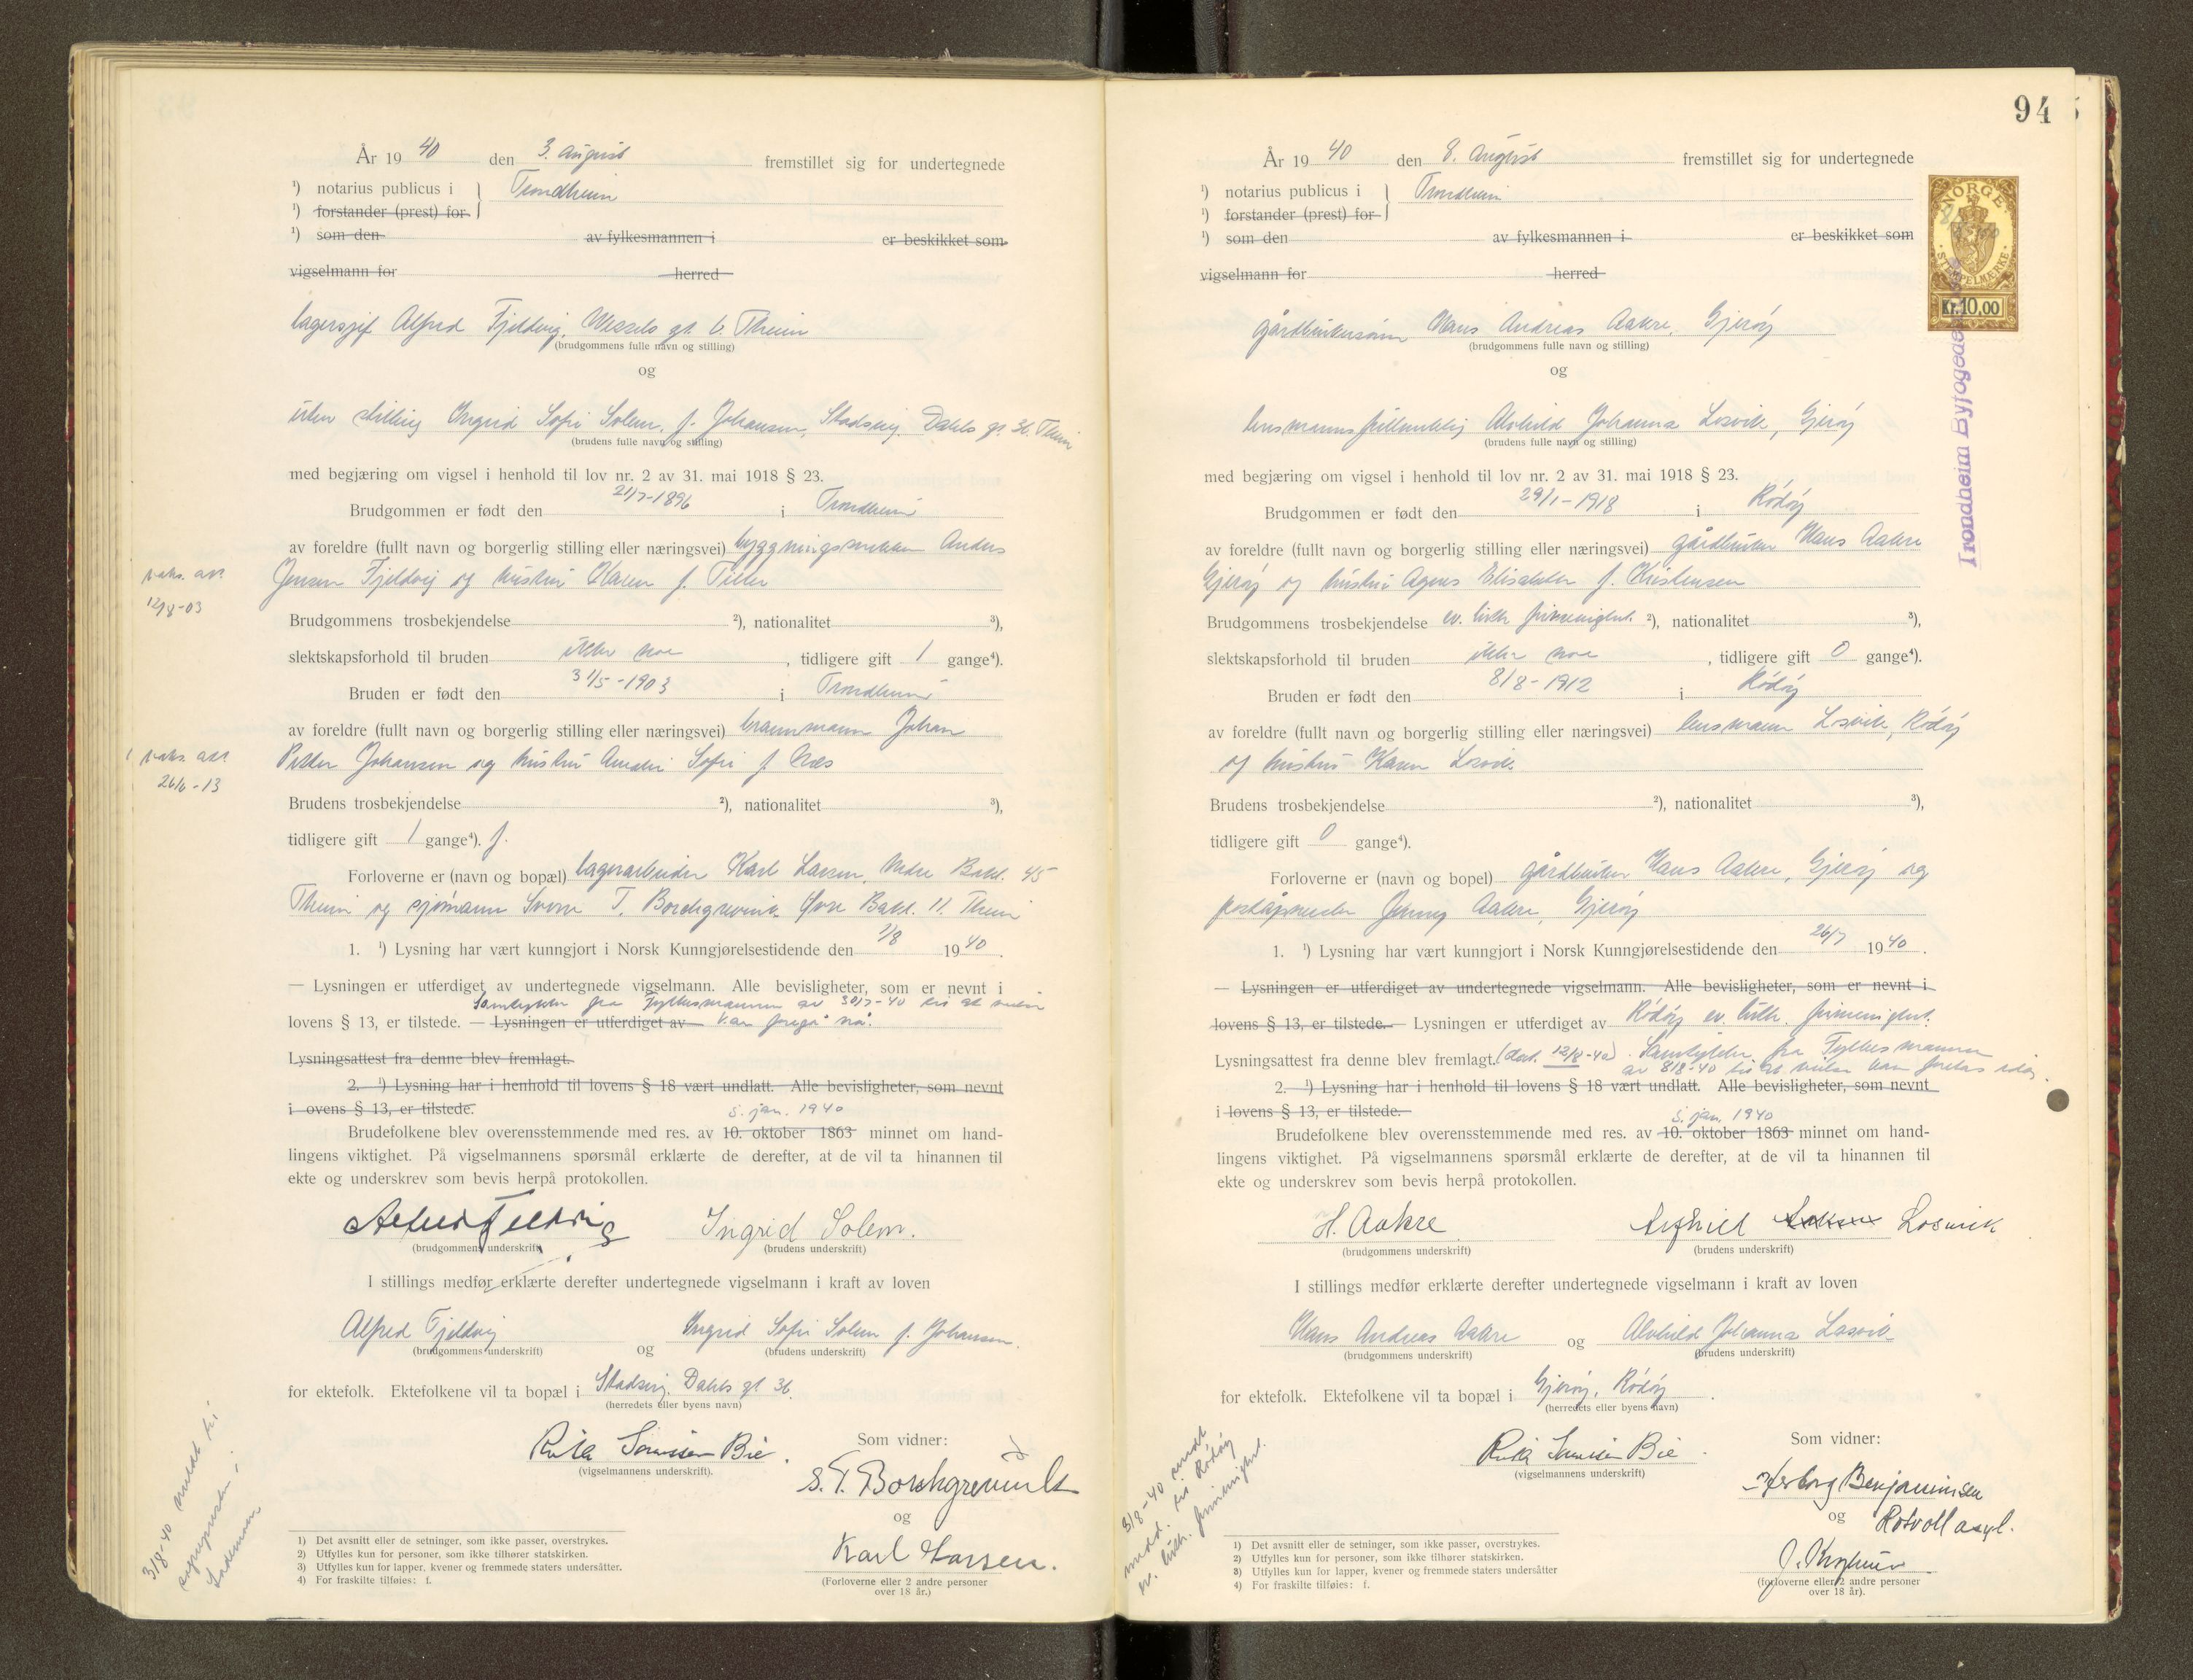 År 1940 den 3. august fremstillet sig for undertegnede
¹) notarius publicus i } Trondheim
¹) forstander (prest) for
¹) som den av fylkesmannen i er beskikket som
vigselmann for herred
Alfred Fjeldvig, Wessels gt.
(brudgommens fulle navn og stilling)
og
uten stilling Ingrid Sofie Solem, f. Johansen, Stadsing. Dahls gt. 3b. Theim
(brudens fulle navn og stilling)
med begjæring om vigsel i henhold til lov nr. 2 av 31. mai 1918 § 23.
Brudgommen er født den 21/7-1896 i Trondheim
av foreldre (fullt navn og borgerlig stilling eller næringsvei) Anders
Jensen Fjeldvig og hustru Karen f. Tiller
vaks. att.
12/8-03
Brudgommens trosbekjendelse ²), nationalitet ³),
slektskapsforhold til bruden ikke noe, tidligere gift 1 gange⁴).
Bruden er født den 31/5-1903 i Trondheim
av foreldre (fullt navn og borgerlig stilling eller næringsvei) brannmann Johan
Petter Johansen og hustru Sofie f. Næs
vaks. att.
26/6-13
Brudens trosbekjendelse ²), nationalitet ³),
tidligere gift 1 gange⁴). f.
Forloverne er (navn og bopæl) lagerarbeider Karl Larsen, Nedre Bakl. 45
Theim og sjømann Sverre T. Borchgrevink Øvre Bakl. 11. Theim
1. ¹) Lysning har vært kunngjort i Norsk Kunngjørelsestidende den 1/8 1940.
— Lysningen er utferdiget av undertegnede vigselmann. Alle bevisligheter, som er nevnt i
Samtykke fra Fylkesmannen av 30/7-40 til at vielse
lovens § 13, er tilstede. — Lysningen er utferdiget av kan foregå nå.
Lysningsattest fra denne blev fremlagt.
2. ¹) Lysning har i henhold til lovens § 18 vært undlatt. Alle bevisligheter, som nevnt
i ovens § 13, er tilstede.
5. jan. 1940
Brudefolkene blev overensstemmende med res. av 10. oktober 1863 minnet om hand-
lingens viktighet. På vigselmannens spørsmål erklærte de derefter, at de vil ta hinannen til
ekte og underskrev som bevis herpå protokollen.
Alfred Fjeldvig Ingrid Solem.
(brudgommens underskrift) (brudens underskrift)
I stillings medfør erklærte derefter undertegnede vigselmann i kraft av loven
Alfred Fjeldvig og Ingrid Sofie Solem f. Johansen.
(brudgommens underskrift) (brudens underskrift)
for ektefolk. Ektefolkene vil ta bopæl i Stadsing. Dahls gt 3b.
(herredets eller byens navn)
Bie.
(vigselmannens underskrift).
Som vidner:
S. T. Borchgrevink
og
Karl Larsen.
(Forloverne eller 2 andre personer
over 18 år.)
3/8-40 meldt til
sognepresten i
Lademoen
1) Det avsnitt eller de setninger, som ikke passer, overstrykes.
2) Utfylles kun for personer, som ikke tilhører statskirken.
3) Utfylles kun for lapper, kvener og fremmede staters undersåtter.
4) For fraskilte tilføies: f.
94
År 1940 den 8. august fremstillet sig for undertegnede
¹) notarius publicus i } Trondheim
¹) forstander (prest) for
¹) som den av fylkesmannen i er beskikket som
vigselmann for herred
NORGE
STEMPELMERKE
Kr. 10,00
Trondheim Byfogedembede
gårdbrukersønn Hans Andreas Aakre, Gjerøy
(brudgommens fulle navn og stilling)
og
lensmannsfullmektig Alvhild Johanna Losvik, Gjerøy
(brudens fulle navn og stilling)
med begjæring om vigsel i henhold til lov nr. 2 av 31. mai 1918 § 23.
Brudgommen er født den 29/1-1918 i Rødøy
av foreldre (fullt navn og borgerlig stilling eller næringsvei) gårdbruker Hans Aakre
Gjerøy og hustru Agnes f. Kristensen
Brudgommens trosbekjendelse ev. luth. frimenighet. ²), nationalitet ³),
slektskapsforhold til bruden ikke noe, tidligere gift 0 gange⁴).
Bruden er født den 8/8-1912 i Rødøy
av foreldre (fullt navn og borgerlig stilling eller næringsvei) lensmann Losvik, Rødøy
og hustru Karen Losvik
Brudens trosbekjendelse ²), nationalitet ³),
tidligere gift 0 gange⁴).
Forloverne er (navn og bopel) gårdbruker Hans Aakre, Gjerøy og
poståpner Jenny Aakre, Gjerøy
1. ¹) Lysning har vært kunngjort i Norsk Kunngjørelsestidende den 26/7 1940.
— Lysningen er utferdiget av undertegnede vigselmann. Alle bevisligheter, som er nevnt i
lovens § 13, er tilstede. — Lysningen er utferdiget av Rødøy ev. luth. frimenighet.
Lysningsattest fra denne blev fremlagt. (dat. 12/8-40). Samtykke fra Fylkesmannen
av 8/8-40 til at vielse kan foretas idag.
2. ¹) Lysning har i henhold til lovens § 18 vært undlatt. Alle bevisligheter, som nevnt
i lovens § 13, er tilstede.
5. jan. 1940
Brudefolkene blev overensstemmende med res. av 10. oktober 1863 minnet om hand-
lingens viktighet. På vigselmannens spørsmål erklærte de derefter, at de vil ta hinannen til
ekte og underskrev som bevis herpå protokollen.
H. Aakre Losvik
(brudgommens underskrift) (brudens underskrift)
I stillings medfør erklærte derefter undertegnede vigselmann i kraft av loven
Hans Andreas Aakre og Alvhild Johanna Losvik
(brudgommens underskrift) (brudens underskrift)
for ektefolk. Ektefolkene vil ta bopæl i Gjerøy, Rødøy.
(herredets eller byens navn)
Bie.
(vigselmannens underskrift)
Som vidner:
Benjaminsen
og Rotvoll asyl.
(forloverne eller 2 andre personer
over 18 år).
8/8-40 sendt
meld. til Rødøy
ev. luth. frimenighet.
1) Det avsnitt eller de setninger, som ikke passer, overstrykes.
2) Utfylles kun for personer, som ikke tilhører statskirken.
3) Utfylles kun for lapper, kvener og fremmede staters undersåtter
4) For fraskilte tilføies: f.